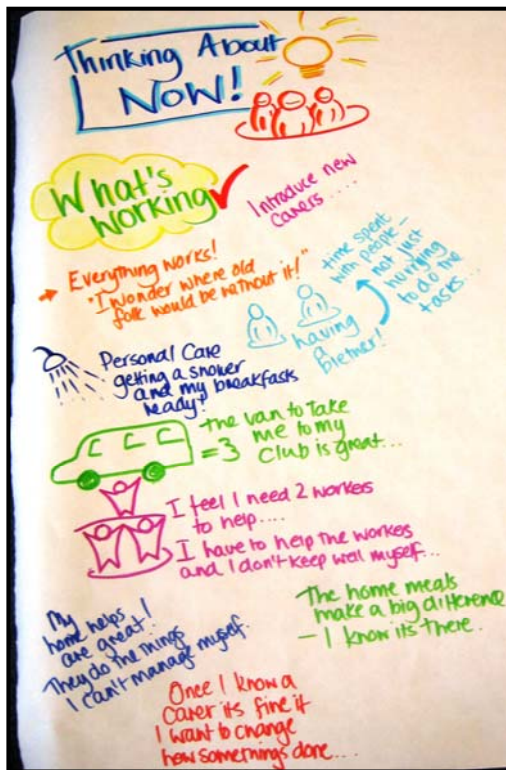 Thinking About
Now!
What's
Working
Introduce new
carers....
Everything works!
"I wonder where old
folk would be without it!"
time spent
with people -
not just
hurrying
to do the
tasks...
having
a
bletner!
Personal Care
getting a shower
and my breakfasts
ready!
the van to take
me to my
club is great...
I feel I need 2 workers
to help....
I have to help the workers
and I don't keep well myself...
The home meals
make a big difference
- I know its there..
My
home helps
are great!
They do the things
I can't manage myself.
Once I know a
carer its fine if
I want to change
how somethings done....